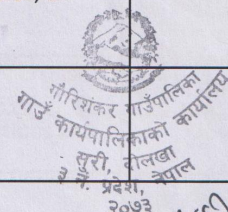 गौरिशंकर गाउँपालिका
गाउँ कार्यपालिकाको कार्यालय
सुरी, दोलखा
३ नं. प्रदेश, नेपाल
२०७३